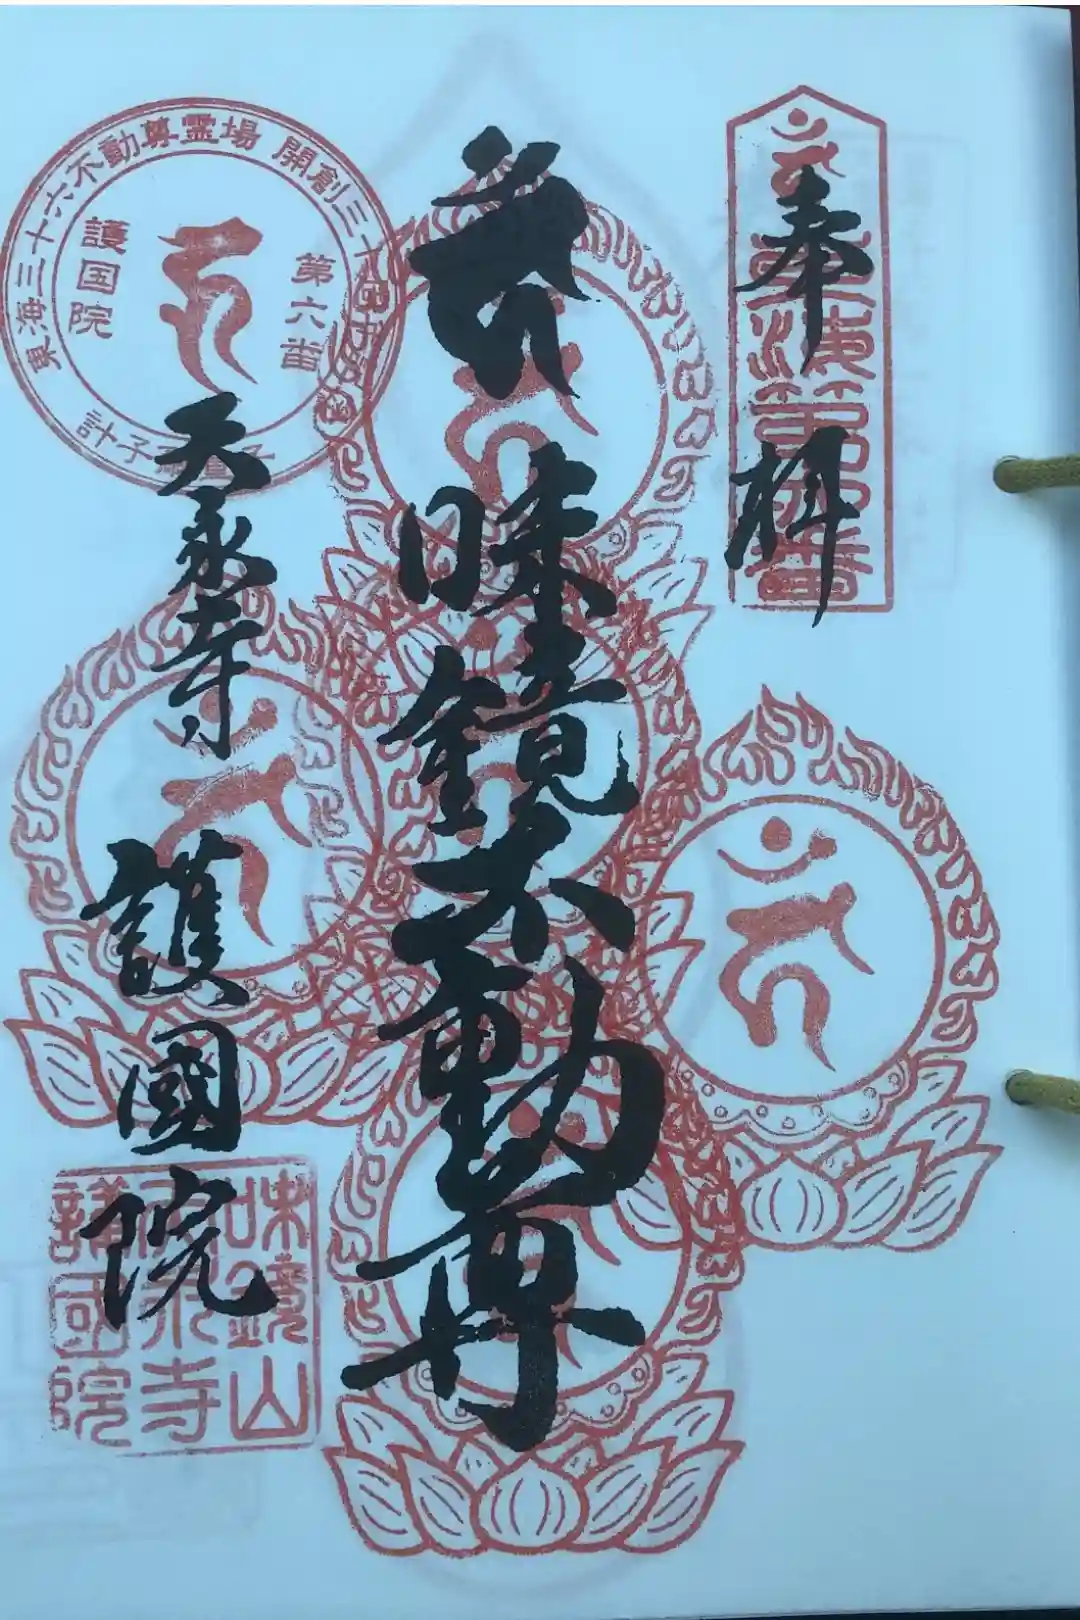 奉拝
味鏡不動尊
天永寺
護國院
東海三十六不動尊霊場 開創三十
第六番
護国院
味鏡山
天永寺
護國院